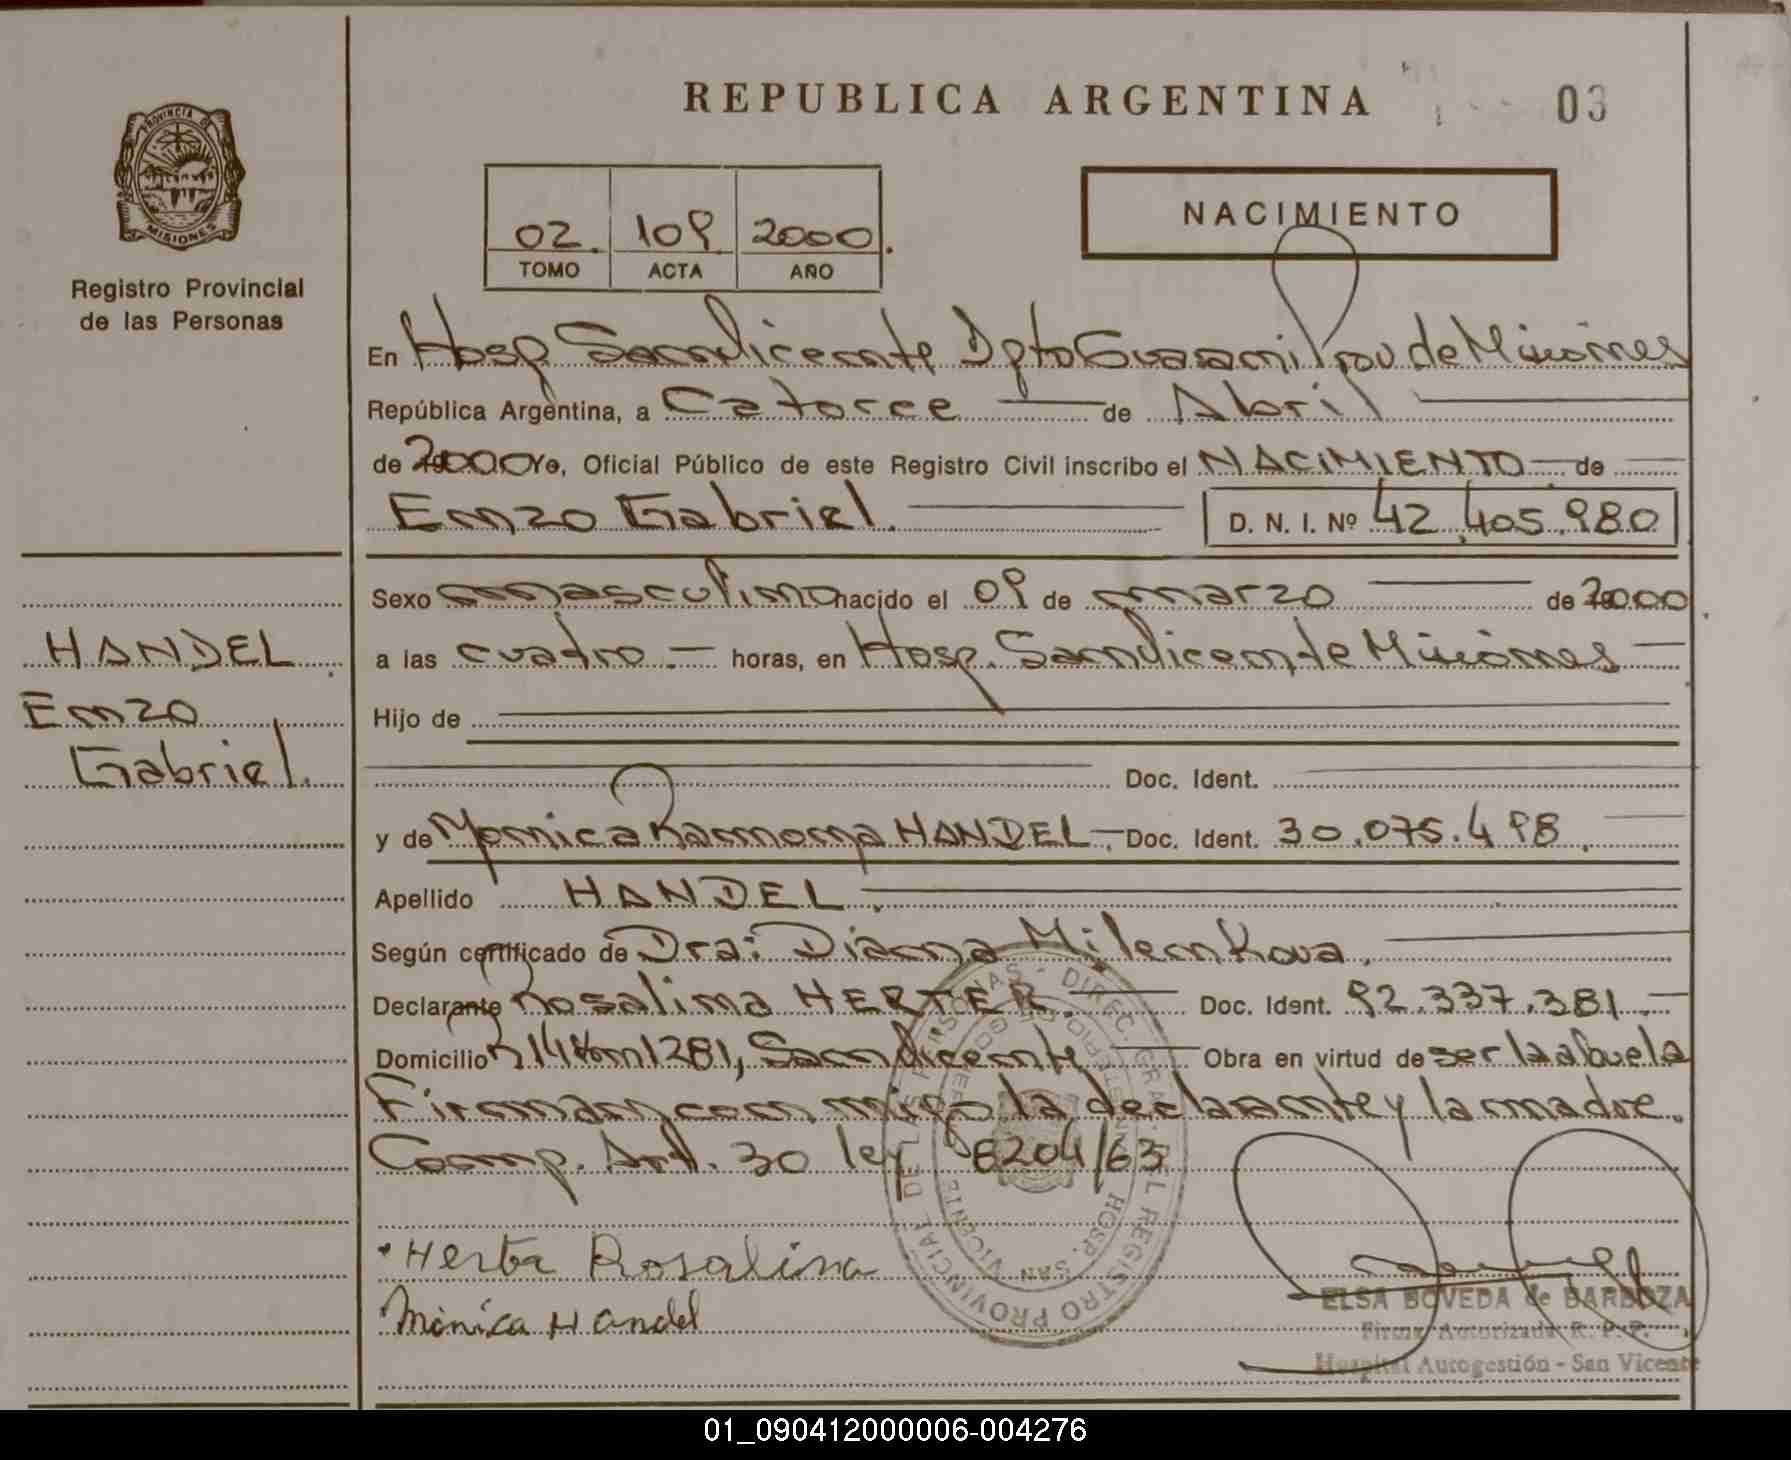 REPUBLICA ARGENTINA
03
PROVINCIA DE
MISIONES
Registro Provincial
de las Personas
02. 109 2000.
TOMO ACTA AÑO
NACIMIENTO
En Hosp San Vicente Dpto Guarani Prov de Misiones
República Argentina, a Catorce de Abril
de 2000 Yo, Oficial Público de este Registro Civil inscribo el NACIMIENTO de
Enzo Gabriel. D. N. I. Nº 42.405.980
Sexo masculino nacido el 09 de marzo de 2000
a las cuatro.- horas, en Hosp. San Vicente Misiones
Hijo de
Doc. Ident.
y de Monica Ramona HANDEL. Doc. Ident. 30.075.498.
Apellido HANDEL.
Según certificado de Dra: Diana Milenkova.
Declarante Rosalina HERTER. Doc. Ident. 92.337.381.
Domicilio R 14 Km 1281, San Vicente Obra en virtud de ser la abuela
Firman con migo la declarante y la madre.
Comp. Art. 30 ley 8204/63
HANDEL.
Enzo
Gabriel.
Rosalina
Mónica Handel
ELSA BOVEDA de BARBOZA
Firma Autorizada R. P. P.
Hospital Autogestión - San Vicente
DIREC. GRAL. DEL REGISTRO PROVINCIAL DE LAS PERSONAS -
HOSP. SAN VICENTE
01_090412000006-004276